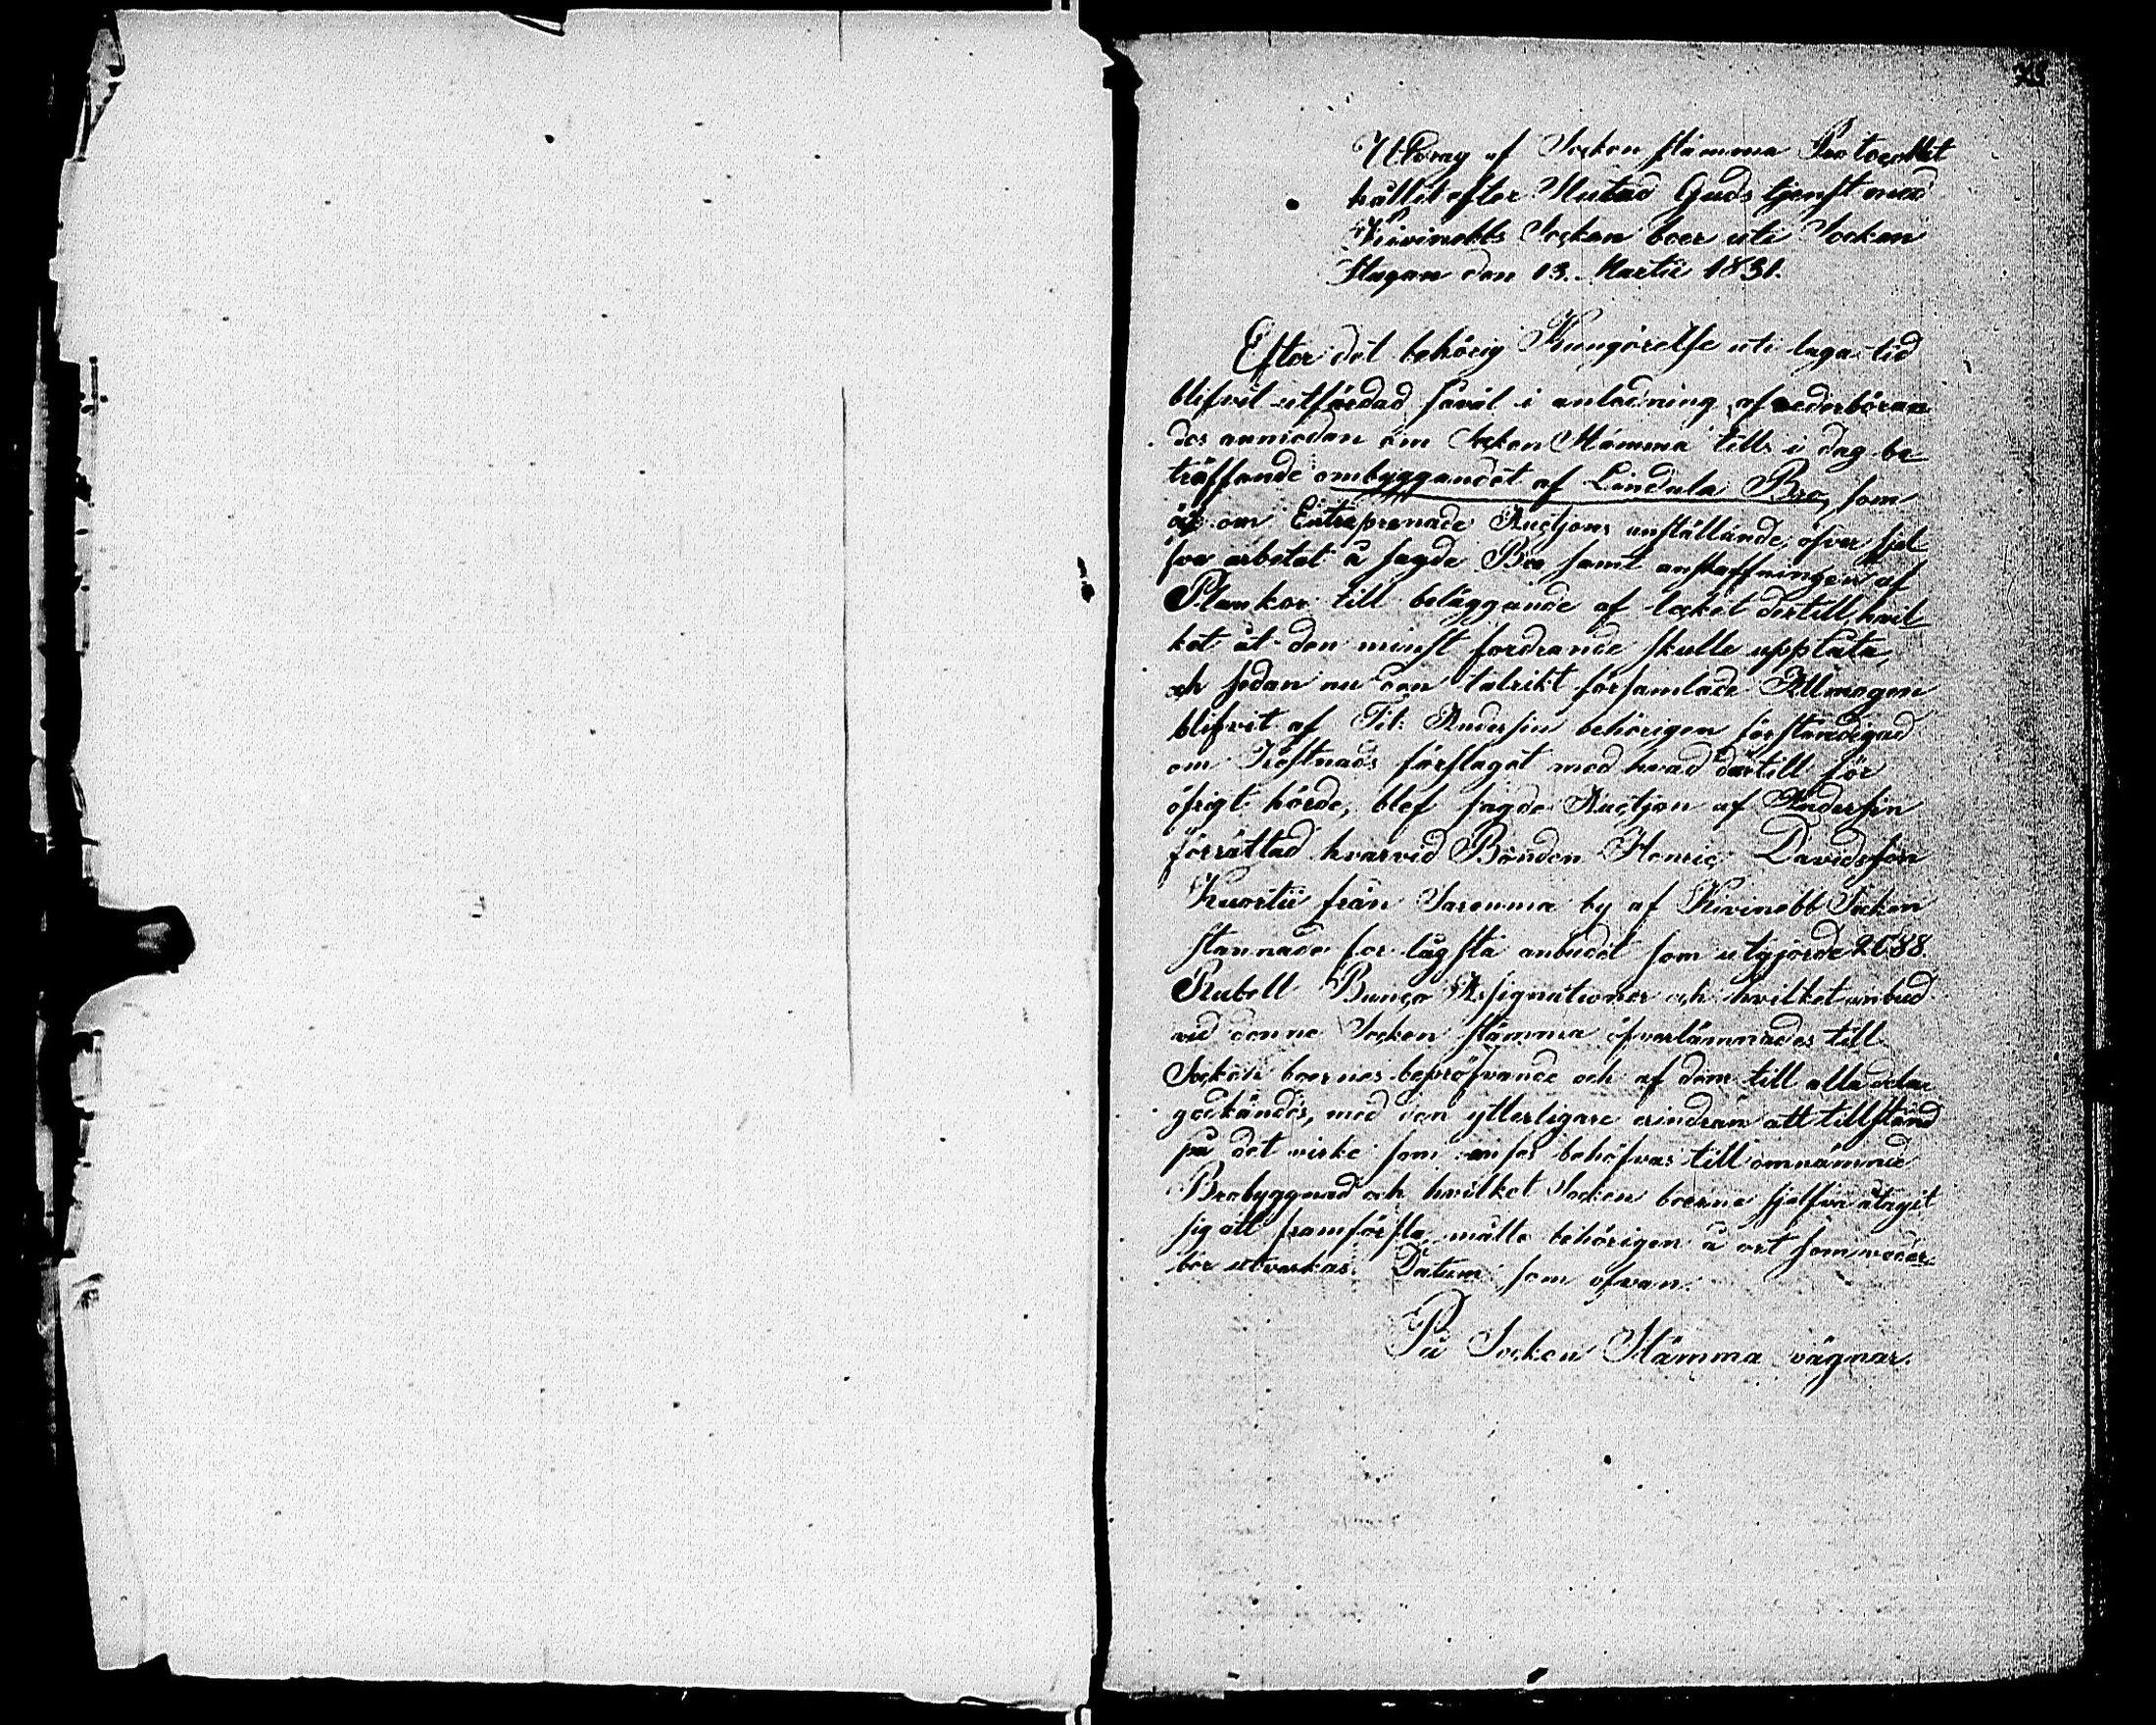 73
Utdrag af Socken stämma Protocollet
hållit efter slutad Guds tjenst med
Kivinebbs Socken boer uti Socken
stugan den 13. Martii 1831.
Efter det behörig Kungörelse uti laga tid
blifvit utfärdad såväl i anledning af vederböran
des anmodan om Socken Stämma tills i dag be
träffande ombyggandet af Lindula Bro, som
åt om Entreprenade Auctjons anställande, öfver sjel
fva arbetet å sagde Bro samt anskaffningen af
Plankor till beläggande af locket dertill, hvil
ket åt den minst fordrande skulle upplåta,
och sedan nu den talrikt församlade Allmogen
blifvit af Tit: Andersin behörigen förständigad
om Kostnads förslaget med hvad dertill för
öfrigt hörde, blef sagde Auctjon af Andersin
förrättad hvarvid Bonden Henric Davidsson
Kuortti från by af Kivinebb Socken
stannade för lägsta anbudet som utgjorde 2688.
Rubell Banco Assignationer och hvilket anbud
vid denne Socken stämma öfverlämnades till
Socken boernes bepröfvande och af dem till alla delar
godkändes, med den ytterligare erindran att tillstånd
på det virke som anses behöfvas till omnämnde
Brobyggnad och hvilket Socken boerne sjelfva åtagit
sig att framförsla, måtte behörigen å ort som veder
bör utverkas. Datum som ofvan.
På Socken Stämma vägnar.